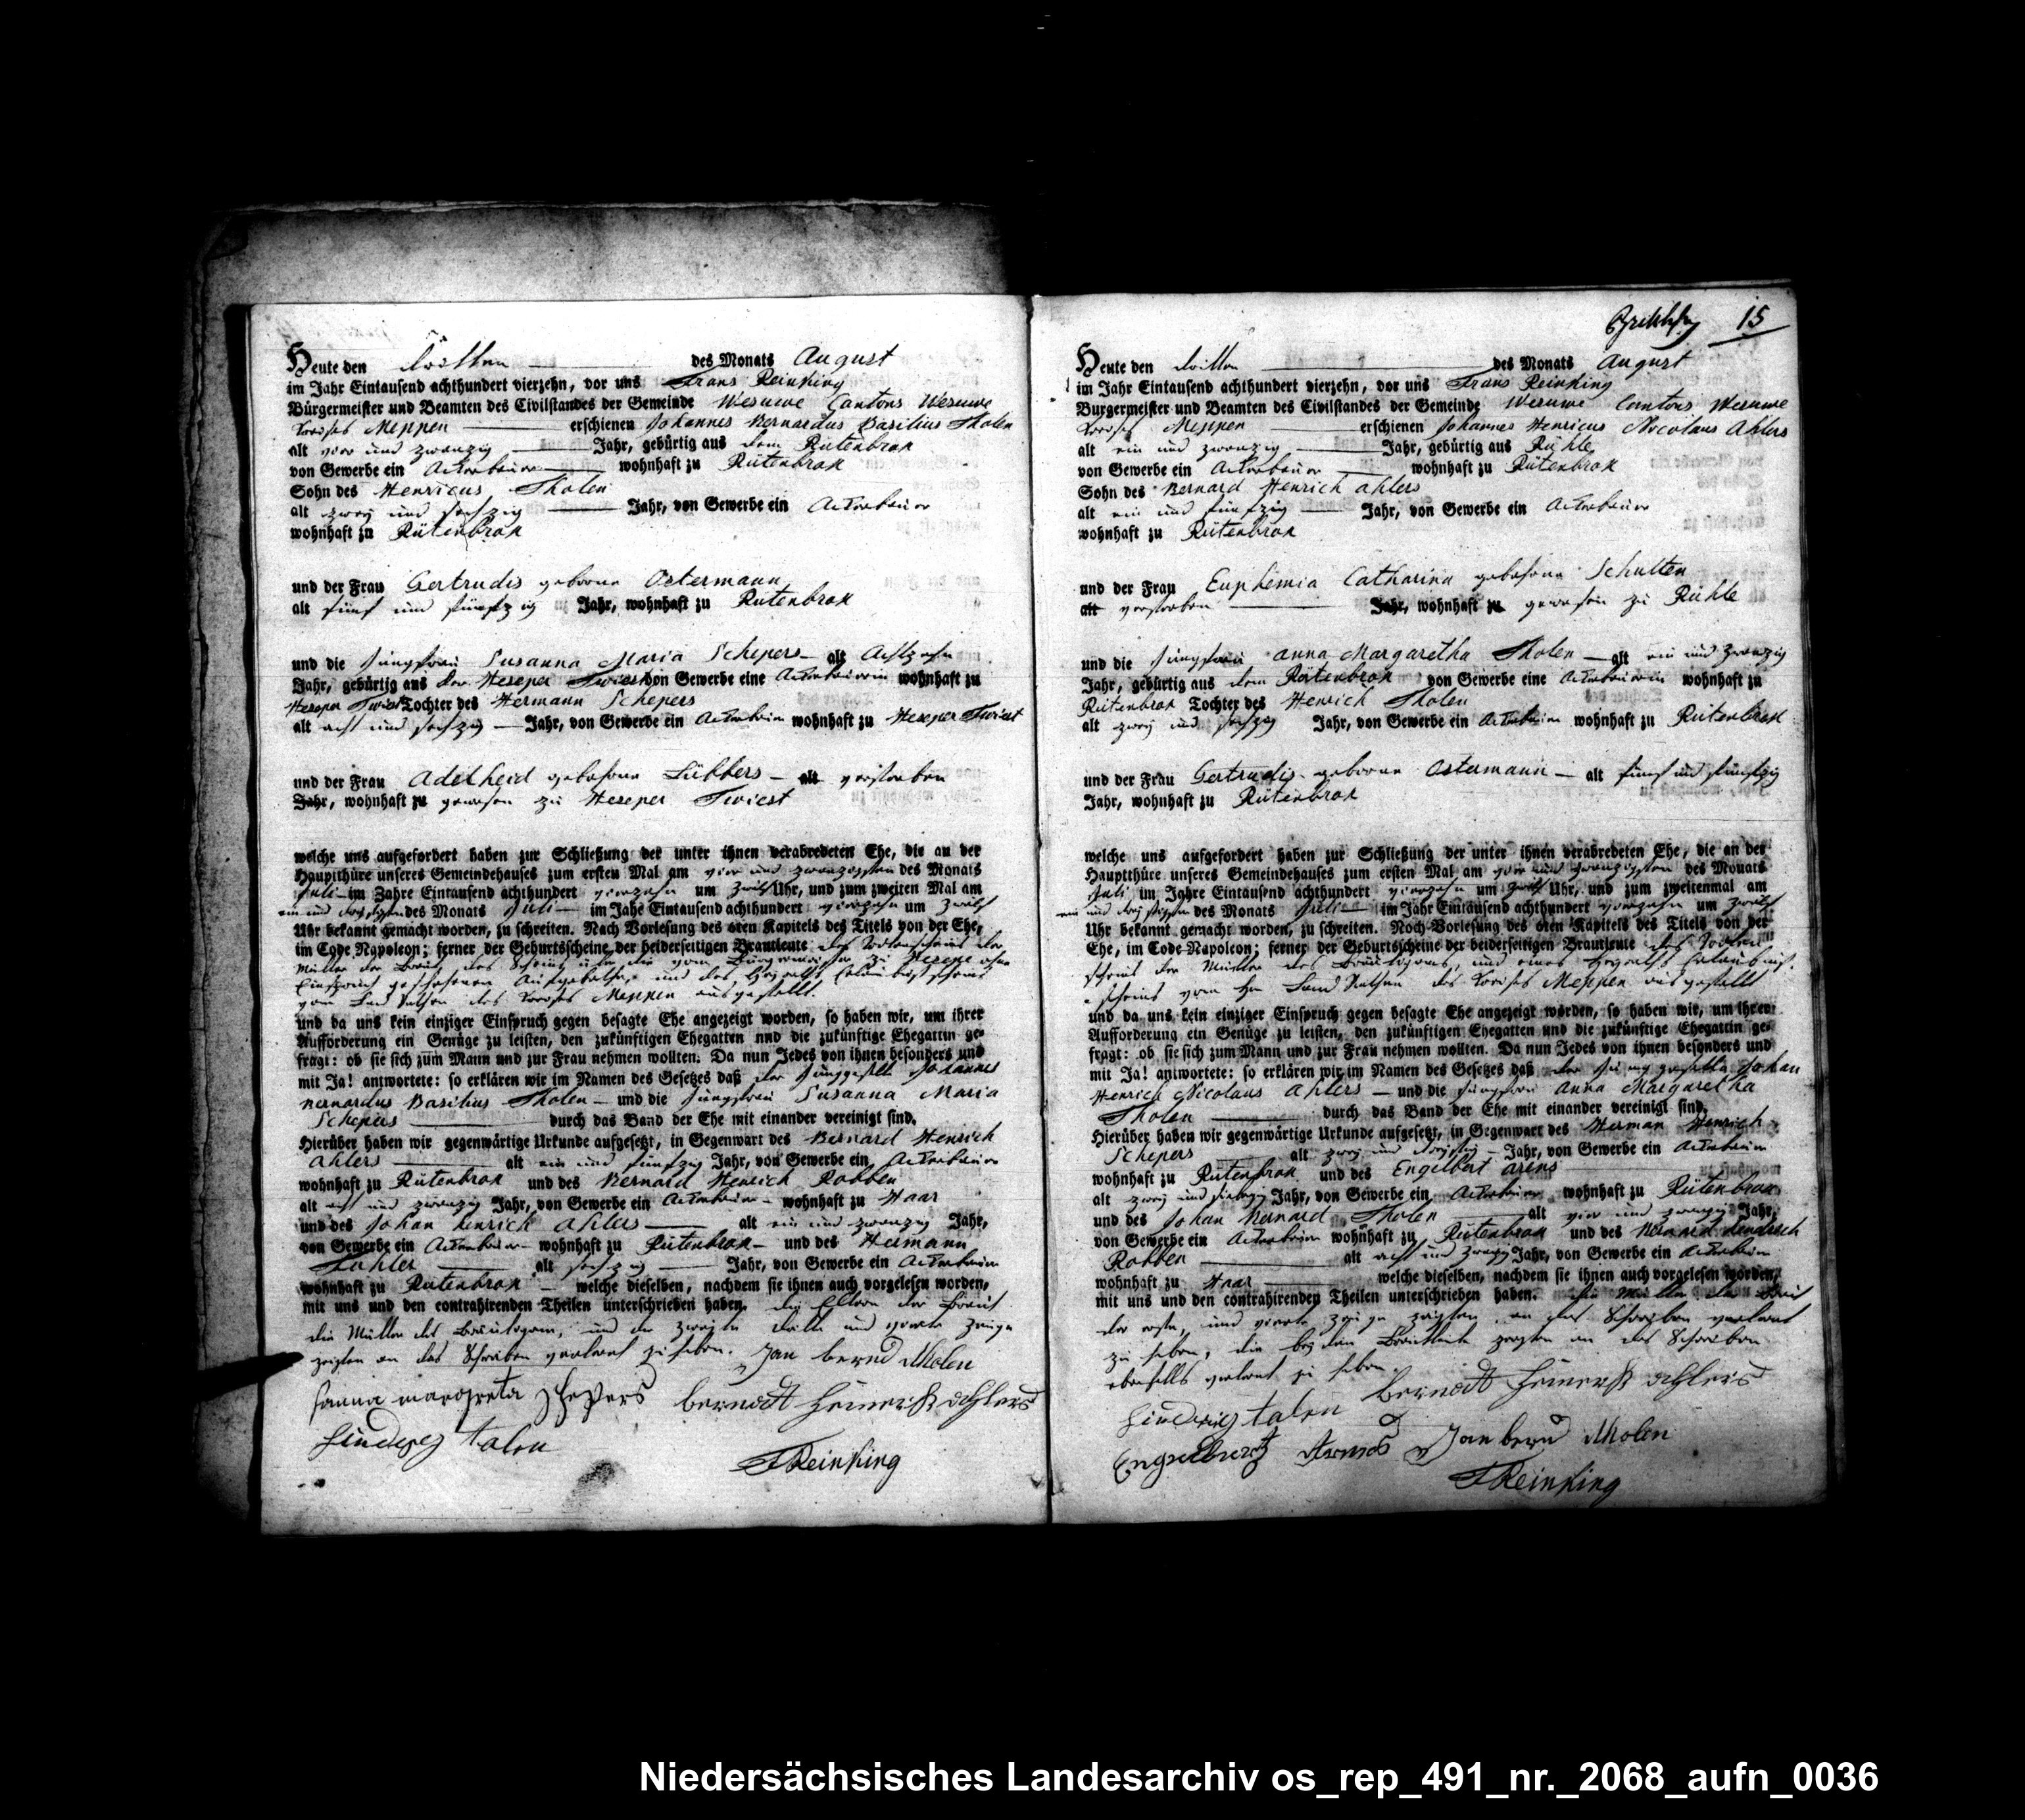 Heute den dritten des Monats August
im Jahr Eintausend achthundert vierzehn, vor uns Frans Reinking
Bürgermeister und Beamten des Civilstandes der Gemeinde Wesuwe Cantons Wesuwe
Kreises Meppen erschienen Johannes Bernardus Basilius Tholen
alt vier und zwanzig Jahr, gebürtig aus dem Rütenbrok
von Gewerbe ein Ackerbauer wohnhaft zu Rütenbrok
Sohn des Henricus Tholen
alt zwey und sechzig Jahr, von Gewerbe ein Ackerbauer
wohnhaft zu Rütenbrok
und der Frau Gertrudis geborne Ostermann
alt fünf und fünfzig Jahr, wohnhaft zu Rütenbrok
und die Jungfrau Susanna Maria Schepers alt Achtzehn
Jahr, gebürtig aus der Heseper Twist von Gewerbe eine Ackerbäuerin wohnhaft zu
Heseper Twist Tochter des Hermann Schepers
alt acht und sechzig Jahr, von Gewerbe ein Ackerbauer wohnhaft zu Heseper Twist
und der Frau Adelheid gebohrne Lübbers alt verstorben
Jahr, wohnhaft zu gewesen zu Heseper Twist
welche uns aufgefordert haben zur Schließung der unter ihnen verabredeten Ehe, die an der
Hauptthüre unseres Gemeindehauses zum ersten Mal am vier und zwanzigsten des Monats
Juli im Jahre Eintausend achthundert vierzehn um zwölf Uhr, und zum zweiten Mal am
ein und dreyßigsten des Monats Juli im Jahe Eintausend achthundert vierzehn um zwölf
Uhr bekannt gemacht worden, zu schreiten. Nach Vorlesung des 6ten Kapitels des Titels von der Ehe,
im Code Napoleon; ferner der Geburtsscheine der beiderseitigen Brautleute des Todtenscheins der
Mutter der Braut des Scheins über die vom Bürgermeister zu Hesepe ohne
Einspruch geschehenen Aufgebothe, und des Heyraths Erlaubnißscheins
vom Land Rathen des Kreises Meppen ausgestellt.
und da uns kein einziger Einspruch gegen besagte Ehe angezeigt worden, so haben wir, um ihrer
Aufforderung ein Genüge zu leisten, den zukünftigen Ehegatten und die zukünftige Ehegattin ge-
fragt: ob sie sich zum Mann und zur Frau nehmen wollten. Da nun Jedes von ihnen besonders und
mit Ja! antwortete: so erklären wir im Namen des Gesetzes daß der Junggeselle Johannes
Bernardus Basilius Tholen und die Jungfrau Susanna Maria
Schepers durch das Band der Ehe mit einander vereinigt sind.
Hierüber haben wir gegenwärtige Urkunde aufgesetzt, in Gegenwart des Bernard Henrich
Ahlers alt ein und fünfzig Jahr, von Gewerbe ein Ackerbauer
wohnhaft zu Rütenbrok und des Bernard Henrich Robben
alt acht und zwanzig Jahr, von Gewerbe ein Ackerbauer wohnhaft zu Haar
und des Johan Henrich Ahlers alt ein und zwanzig Jahr,
von Gewerbe ein Ackerbauer wohnhaft zu Rütenbrok und des Hermann
alt sechzig Jahr, von Gewerbe ein Ackerbauer
wohnhaft zu Rütenbrok welche dieselben, nachdem sie ihnen auch vorgelesen worden,
mit uns und den contrahirenden Theilen unterschrieben haben. die Eltern der Braut
die Mutter des Bräutigams, und der zweyte dritte und vierte Zeuge
zeigten an das Schreiben verlernt zu haben. Jan bernd tholen
sanna margreta schepers bernadt heinerich ahlers
hinderig talen
FReinking
15
Heute den dritten des Monats August
im Jahr Eintausend achthundert vierzehn, vor uns Frans Reinking
Burgermeister und Beamten des Civilstandes der Gemeinde Wesuwe Cantons Wesuwe
Kreises Meppen erschienen Johannes Henricus Nicolaus Ahlers
alt ein und zwanzig Jahr, gebürtig aus Rühle
von Gewerbe ein Ackerbauer wohnhaft zu Rütenbrok
Sohn des Bernard Henrich Ahlers
alt ein und fünfzig Jahr, von Gewerbe ein Ackerbauer
wohnhaft zu Rütenbrok
und der Frau Euphemia Catharina gebohrne Schulten
alt verstorben Jahr, wohnhaft zu gewesen zu Rühle
und die Jungfrau Anna Margaretha Tholen alt ein und zwanzig
Jahr, gebürtig aus dem Rütenbrok von Gewerbe eine Ackerbäuerin wohnhaft zu
Rütenbrok Tochter des Henrich Tholen
alt zwey und sechzig Jahr, von Gewerbe ein Ackerbauer wohnhaft zu Rütenbrok
und der Frau Gertrudis geborne Ostermann alt fünf und fünfzig
Jahr, wohnhaft zu Rütenbrok
welche uns aufgefordert haben zur Schließung der unter ihnen verabredeten Ehe, die an der
Hauptthüre unseres Gemeindehauses zum ersten Mal am vier und zwanzigsten des Monats
Juli im Jahre Eintausend achthundert vierzehn um zwölf Uhr, und zum zweitenmal am
ein und dreyßigsten des Monats Juli im Jahr Eintausend achthundert vierzehn um zwölf
Uhr bekannt gemacht worden, zu schreiten. Noch Vorlesung des 6ten Kapitels des Titels von der
Ehe, im Code-Napoleon; ferner der Geburtsscheine der beiderseitigen Brautleute des Todten-
scheins der Mutter des Bräutigams, und eines Heyraths Erlaubniß-
scheins vom Hn Land Rathen des Kreises Meppen ausgestellt
und da uns kein einziger Einspruch gegen besagte Ehe angezeigt worden, so haben wir, um ihrer
Aufforderung ein Genüge zu leisten, den zukünftigen Ehegatten und die zukünftige Ehegattin ge-
fragt: ob sie sich zum Mann und zur Frau nehmen wollten. Da nun Jedes von ihnen besonders und
mit Ja! antwortete: so erklären wir im Namen des Gesetzes daß der Junggeselle Johan
Henrich Nicolaus Ahlers und die Jungfrau Anna Margaretha
Tholen durch das Band der Ehe mit einander vereinigt sind.
Hierüber haben wir gegenwärtige Urkunde aufgesetzt, in Gegenwart des Herman Henrich
Schepers alt zwey und dreyßig Jahr, von Gewerbe ein Ackerbauer
wohnhaft zu Rütenbrok und des Engelbert Arens
alt zwey und siebenzig Jahr, von Gewerbe ein Ackerbauer wohnhaft zu Rütenbrok
und des Johan Bernard Tholen alt vier und zwanzig Jahr,
von Gewerbe ein Ackerbauer wohnhaft zu Rütenbrok und des Bernard Hendrich
Robben alt acht und zwanzig Jahr, von Gewerbe ein Ackerbauer
wohnhaft zu Haar welche dieselben, nachdem sie ihnen auch vorgelesen worden,
mit uns und den contrahirenden Theilen unterschrieben haben. die Mutter der Braut
der erste, und vierte Zeuge zeigten an das Schreiben verlernt
zu haben, die beyden Brautleute zeigten an das Schreiben
ebenfalls verlernt zu haben.
bernadt heinerich ahlers
hinderig talen
Engelbertz Arends Jan bernd tholen
FReinking
Niedersächsisches Landesarchiv os_rep_491_nr._2068_aufn_0036